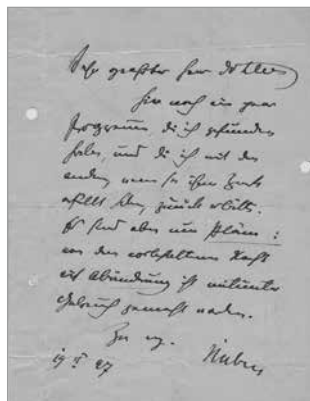 Sehr geehrter Herr
hier noch ein paar
Programme, die ich gefunden
habe, und die ich mit den
andern, wenn sie ihren Zweck
erfüllt haben, zurück erbitte.
Es sind aber nur Pläne:
von dem vorbehaltenen Recht
auf Abänderung ist mitunter
Gebrauch gemacht worden.
Ihr erg.
19 II 27